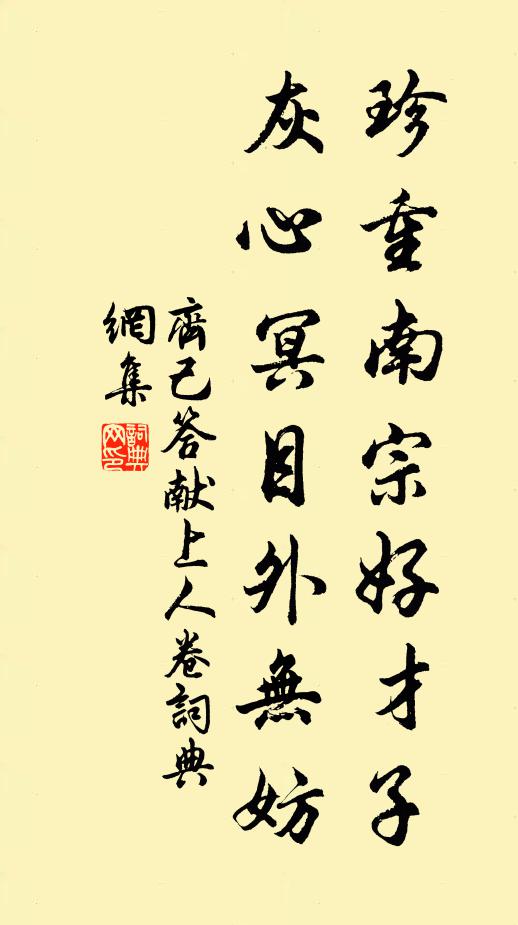 珍重南宗好才子
灰心冥目外無妨
齊己答献上人卷詞典
網集
詞典
网印